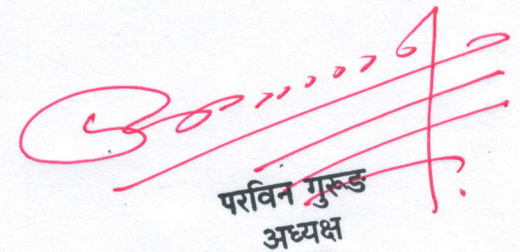 परविन गुरूड
अध्यक्ष